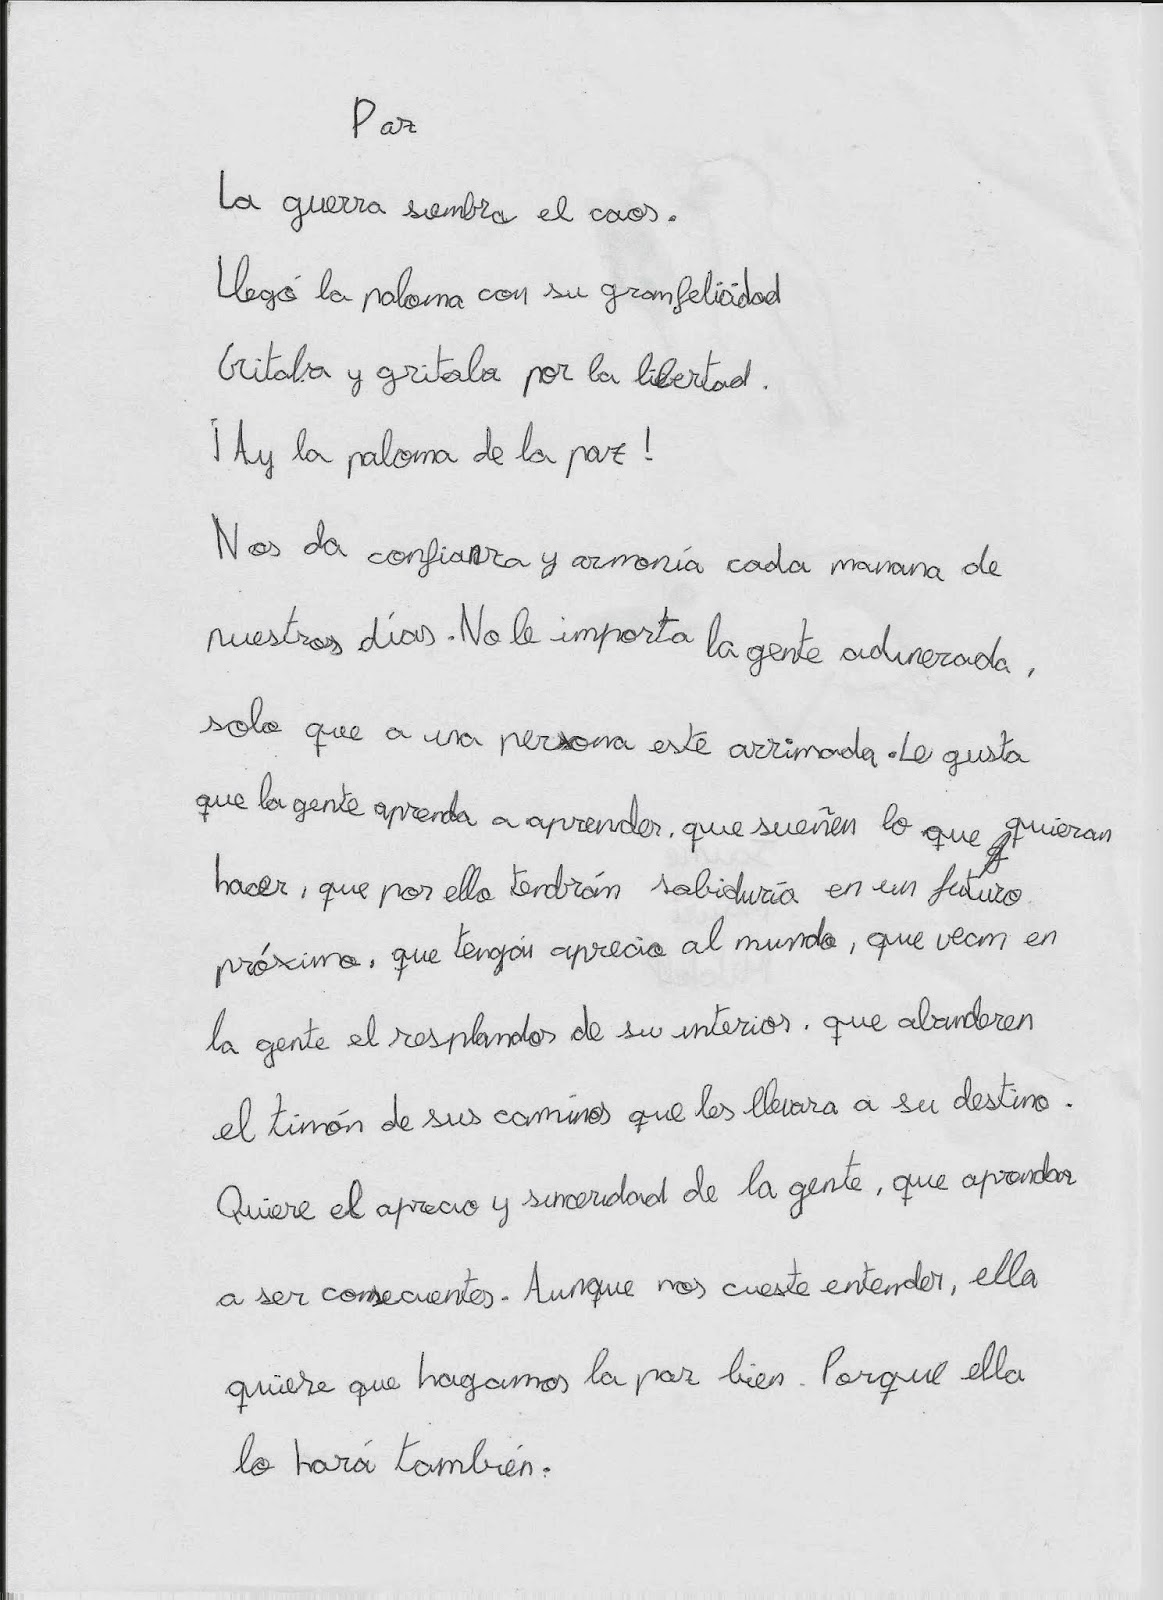 Paz
La guerra siembra el caos.
Llegó la paloma con su gran felicidad
Gritaba y gritaba por la libertad.
¡Ay la paloma de la paz!
Nos da confianza y armonía cada manana de
nuestros días. No le importa la gente adinerada,
solo que a una persona esté arrimada. Le gusta
que la gente aprenda a aprender, que sueñen lo que quieran
hacer, que por ello tendrán sabiduría en un futuro
próximo, que tengan aprecio al mundo, que vean en
la gente el resplandor de su interior, que abanderen
el timón de sus caminos que les llevara a su destino.
Quiere el aprecio y sinceridad de la gente, que aprendan
a ser consecuentes. Aunque nos cueste entender, ella
quiere que hagamos la paz bien. Porque ella
lo hará también.